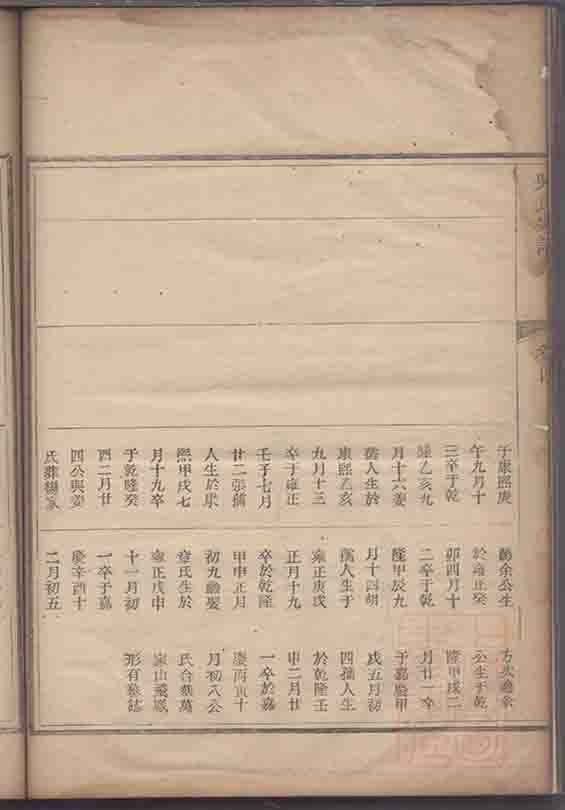 于康熙庚
午九月十
三卒于乾
隆乙亥九
月十六妻
人生於
康熙乙亥
九月十三
卒于雍正
壬子七月
廿二張孺
人生於康
熙甲戌七
月十九卒
于乾隆癸
酉二月廿
四公與妻
氏葬楊家
余公生
於雍正癸
卯四月十
二卒于乾
隆甲辰九
月十四胡
孺人生于
雍正庚戌
正月十九
卒於乾隆
甲申正月
初九繼娶
章氏生於
雍正戊申
十一月初
一卒于嘉
慶辛酉十
二月初五
公生于乾
隆甲戌二
月廿一卒
于嘉慶甲
戌五月初
四孺人生
於乾隆壬
申二月廿
一卒於嘉
慶丙寅十
月初八公
氏合葬萬
家山飛鳳
形有碑誌